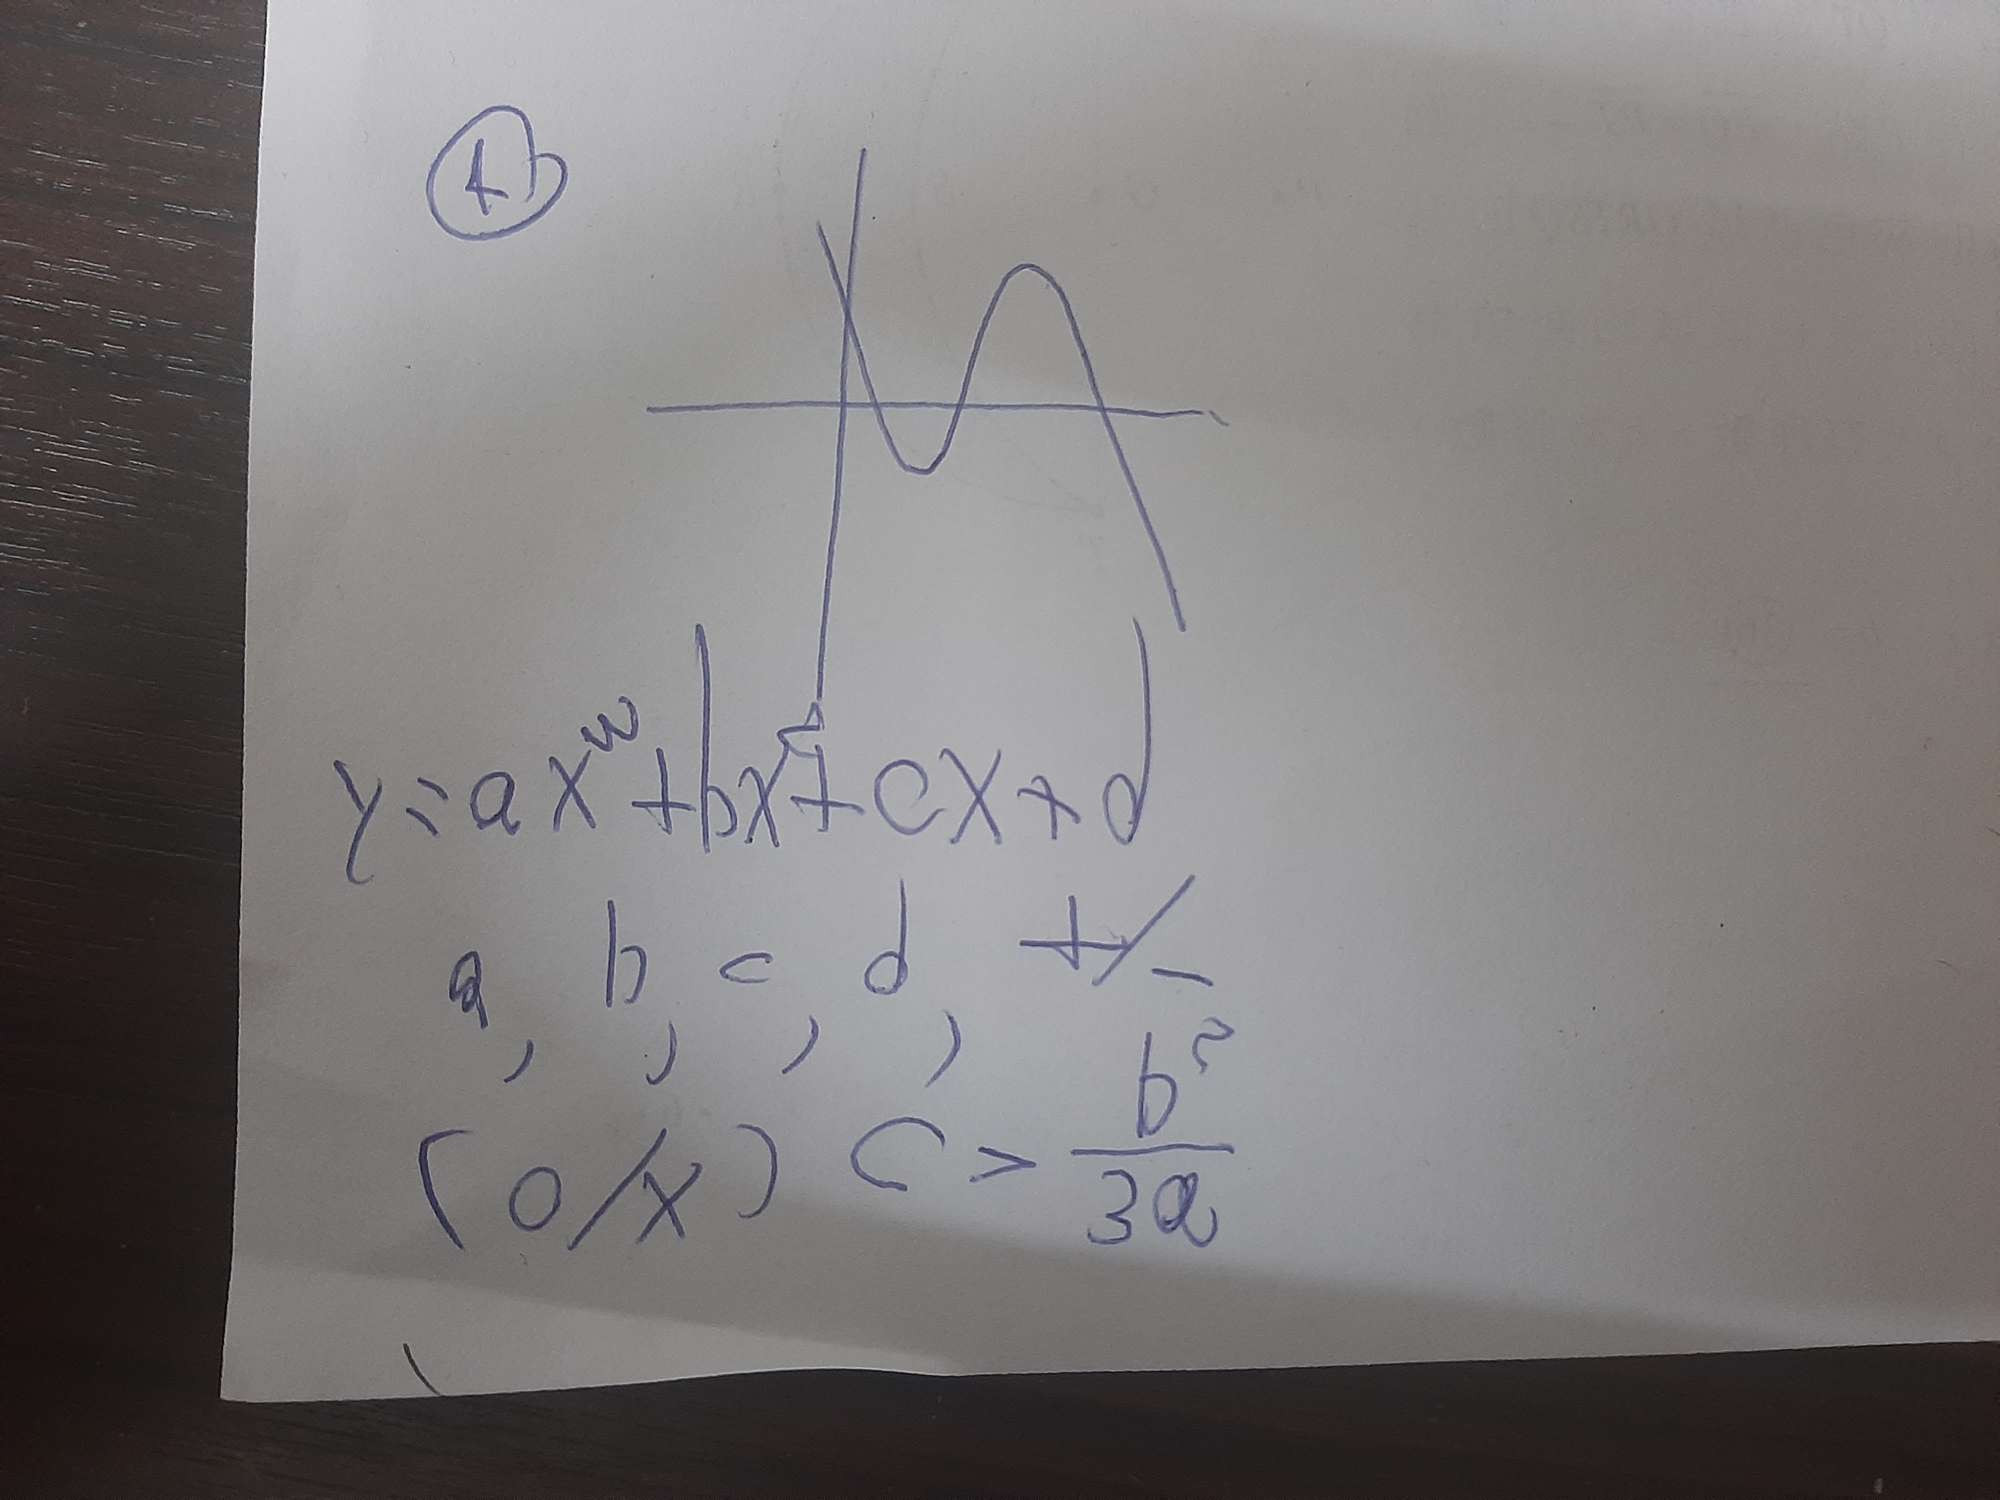 y = ax³ + bx² + cx + d
a, b, c, d, +/-
(0/x) c > b²/3a